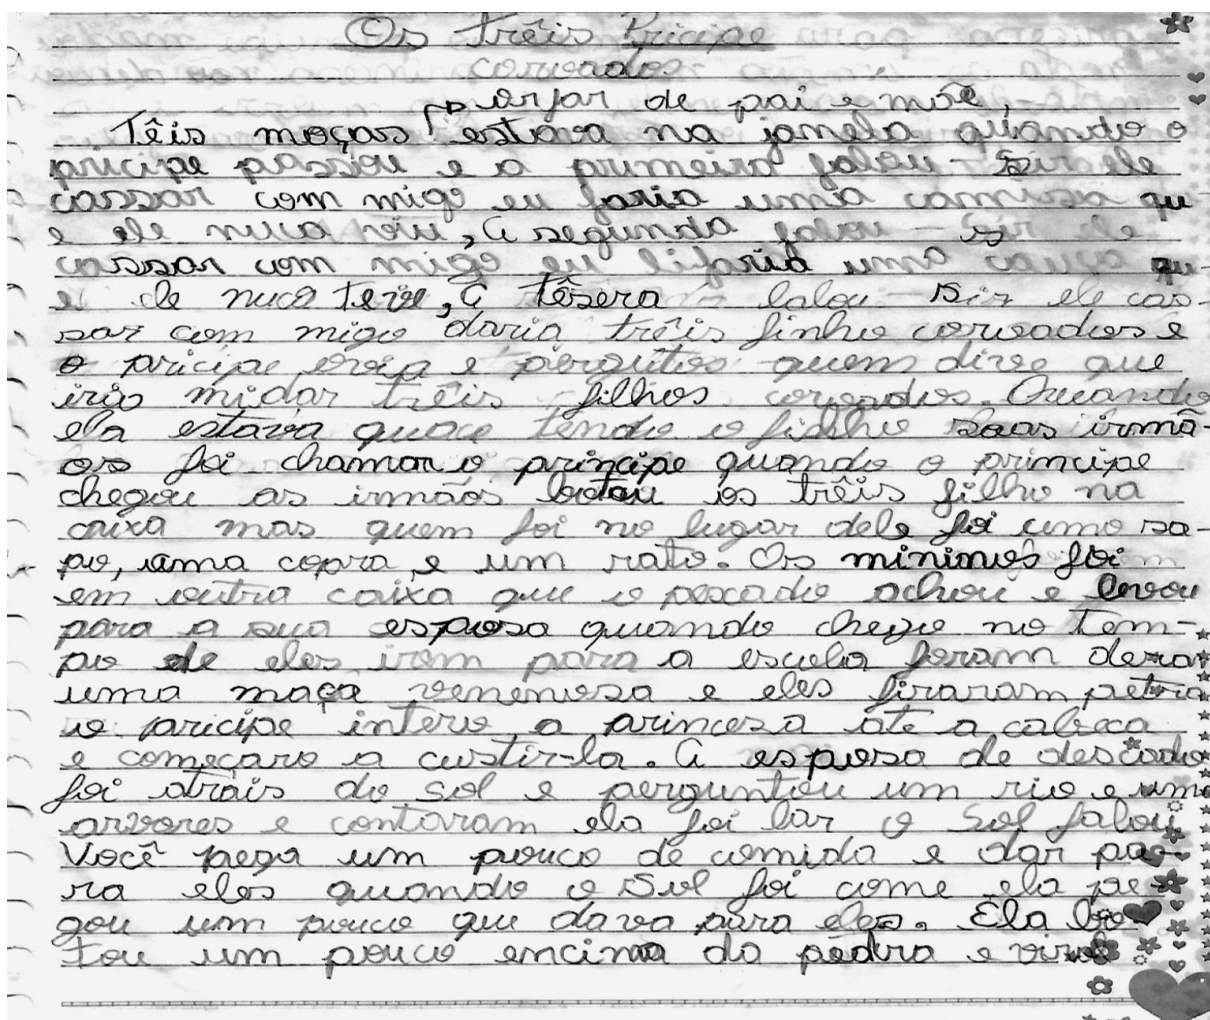 Os trêis Pricipe
coroados
orfar de pai e mãe,
Têis moças estava na janela quando o
pricipe passou e a primeira falou - Sir ele
cassar com migo eu faria uma camisa qu
e ele nuca viu, a segunda falou - sir ele
cassar com migo eu lifaria uma causa qu-
e ele nuca teve, a têsera falou - Sir ele cas-
sar com migo daria trêis finho coroados e
o pricipe ovia e pergutou quem dise que
iria midar trêis filhos coroados. Quando
ela estava quace tendo o filho suas irmã-
os foi chamar o principe quando o principe
chegou as irmãos botou os trêis filho na
caixa mas quem foi no lugar dele foi umo sa-
po, uma copra e um rato. Os mininos foi
em outra caixa que o pescado achou e levou
para a sua esposa quando chego no tem-
po de eles irom para a escola foram dera
uma maça venenosa e eles firaram petra
o pricipe intero a princesa ate a cabeca
e começaro a custir-la. A esposa de
foi atrais do sol e perguntou um rio e uma
arvores e contaram ela foi lar o Sol falou
Você pega um pouco de comida e dar pa-
ra eles quando o Sol foi come ela pe-
gou um pouco que dava para eles. Ela bo-
tou um pouco encima da pedra e virou